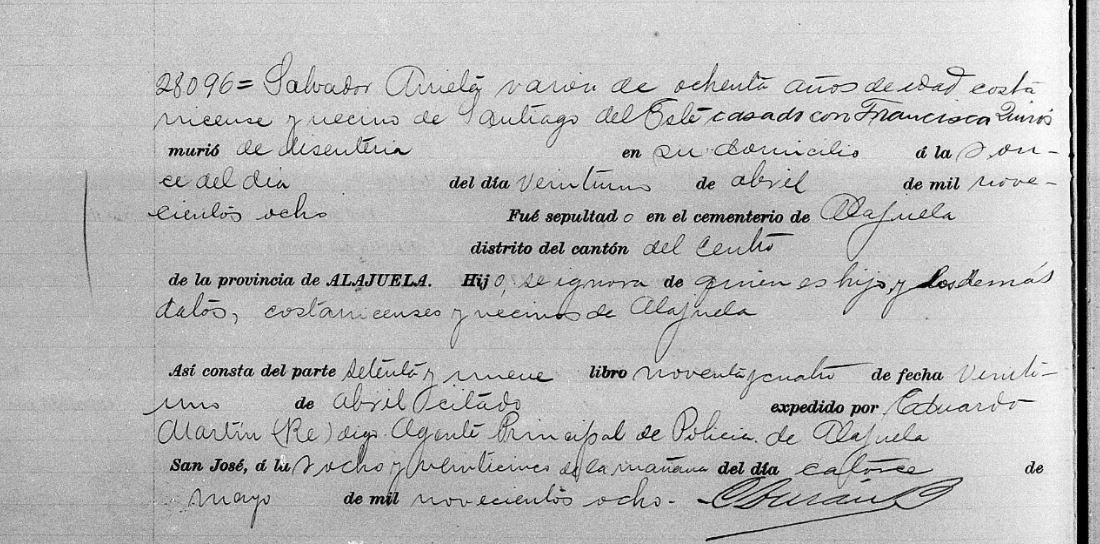 28096= Salvador Arrieta varón de ochenta años de edad costa
rricense y vecino de Santiago del Este casado con Francisca Quirós
murió de disentería en su domicilio á las on-
ce del día del día veintiuno de abril de mil nove-
cientos ocho Fué sepultado en el cementerio de Alajuela
distrito del cantón del Centro
de la provincia de ALAJUELA. Hijo, se ignora de quien es hijo, y los demás
datos, costarricenses y vecinos de Alajuela
Así consta del parte setenta y nueve libro noventa y cuatro de fecha veinti-
uno de abril citado expedido por Eduardo
Martín (Re) digo Agente Principal de Policía de Alajuela
San José, á las ocho y veinticinco de la mañana del día catorce de
mayo de mil novecientos ocho.-